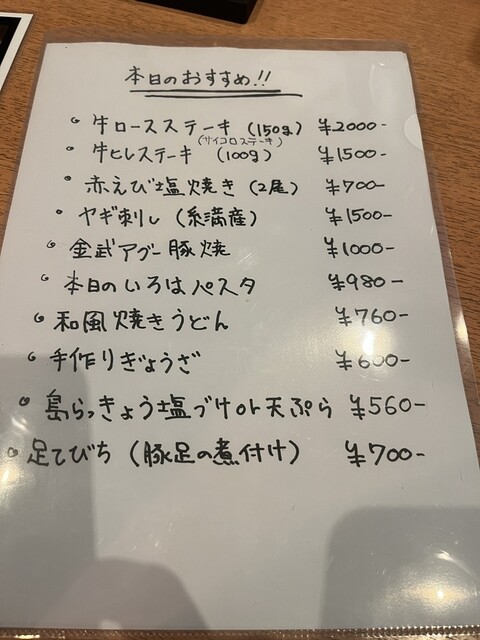 本日のおすすめ!!
• 牛ロースステーキ (150g) ¥2000-
(サイコロステーキ)
• 牛ヒレステーキ (100g) ¥1500-
• 赤えび塩焼き (2尾) ¥700-
• ヤギ刺し (糸満産) ¥1500-
• 金武アグー豚焼 ¥1000-
• 本日のいろはパスタ ¥980-
• 和風焼きうどん ¥760-
• 手作りぎょうざ ¥600-
• 島らっきょう塩づけor天ぷら ¥560-
• 足てびち (豚足の煮付け) ¥700-